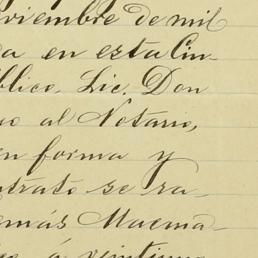 viembre de mil
a en esta Ciu-
blico, Lic. Don
o al Notario,
n forma y
ntrato se ra-
emás Macma-
o, á veintiuno